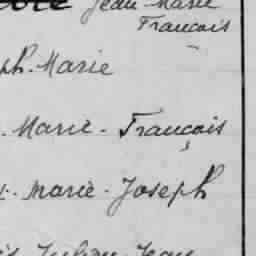 Jean-Marie
François
ph-Marie
-Marie-François
-Marie-Joseph
Julien Jean